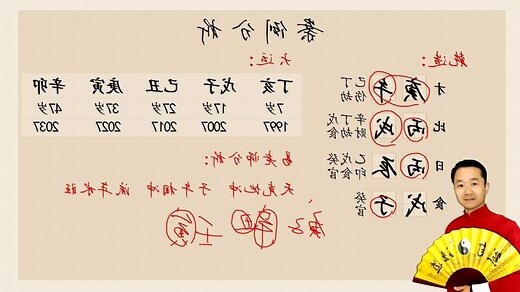 案例分析
乾造：
才 庚午 己丁 伤劫
比 丙戌 辛丁戊 财劫食
日 丙辰 乙戊癸 印食官
食 戊子 癸 官
大运：
丁亥 戊子 己丑 庚寅 辛卯
7岁 17岁 27岁 37岁 47岁
1997 2007 2017 2027 2037
易老师分析：
天克地冲 子午相冲 流年水旺
庚子 辛丑 壬寅